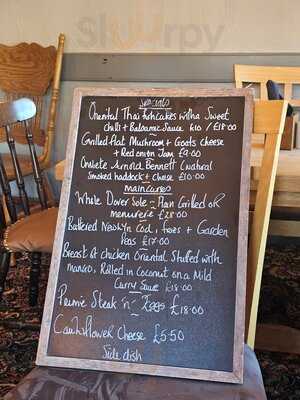 Sluurpy
Specials
Oriental Thai fishcakes with a Sweet
chilli + Balsamic Sauce £10 / £18.00
Grilled flat Mushroom + Goats cheese
+ Red onion Jam £9.00
Omlete Arnold Bennett (natural
Smoked haddock + cheese £10.00
main courses
Whole Dover Sole - Plain Grilled OR
menuiere £28.00
Battered Newlyn Cod, fries + Garden
Peas £17.00
Breast of chicken Oriental Stuffed with
mango, Rolled in coconut on a Mild
Curry Sauce £18.00
Prime Steak 'n' Eggs £18.00
Cauliflower Cheese £5.50
Side dish